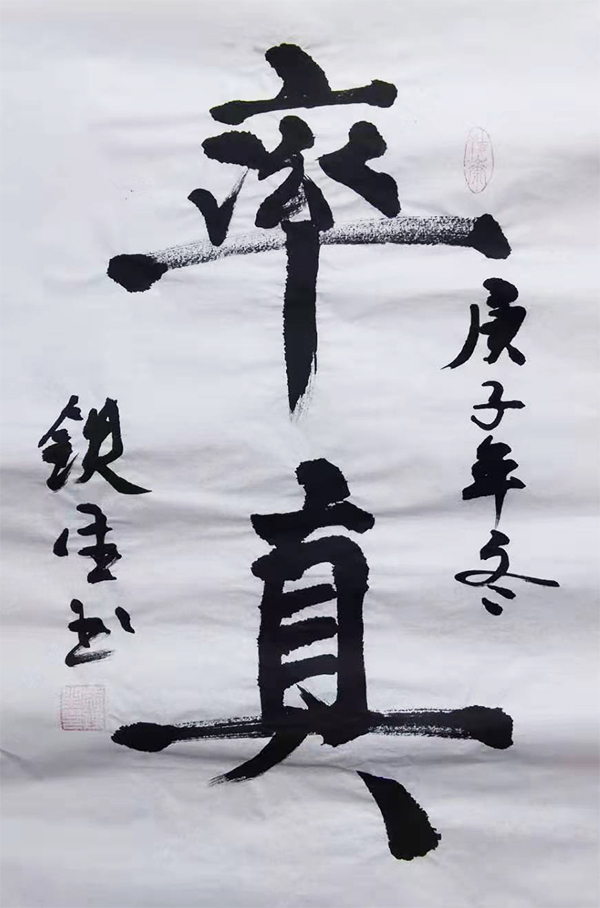 率真
庚子年冬
铁佳书